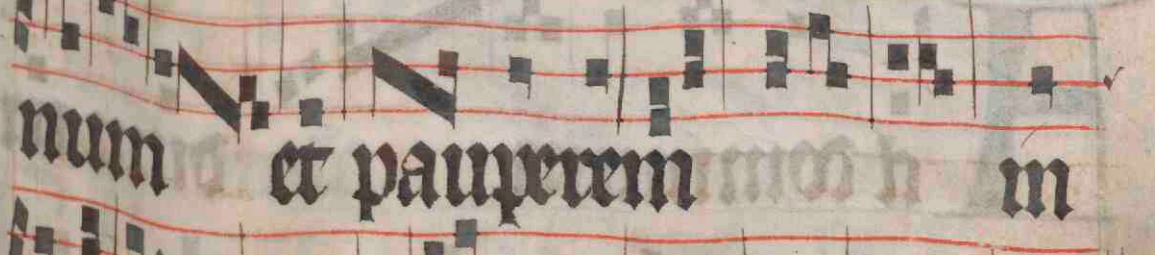 num et pauperem in